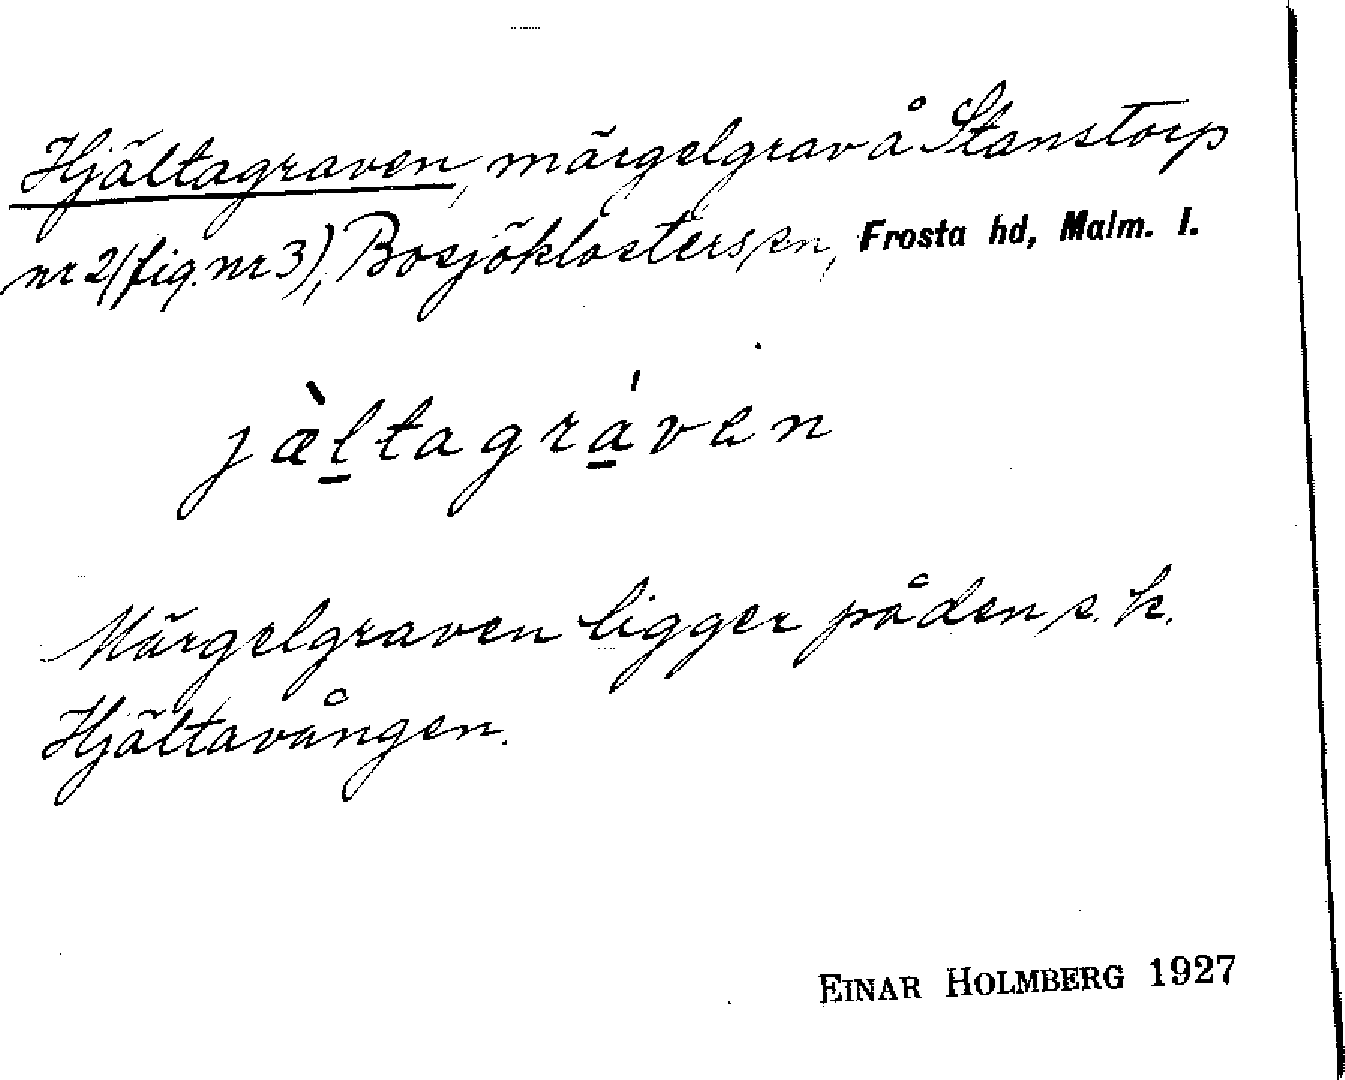 Hjältagraven, märgelgrav å Stanstorp
nr 2 (fig. nr 3), Bosjöklosters sn, Frosta hd, Malm. l.
jæ̀l̲tagrá̲ven
Märgelgraven ligger på den s.k.
Hjältavången.
EINAR HOLMBERG 1927